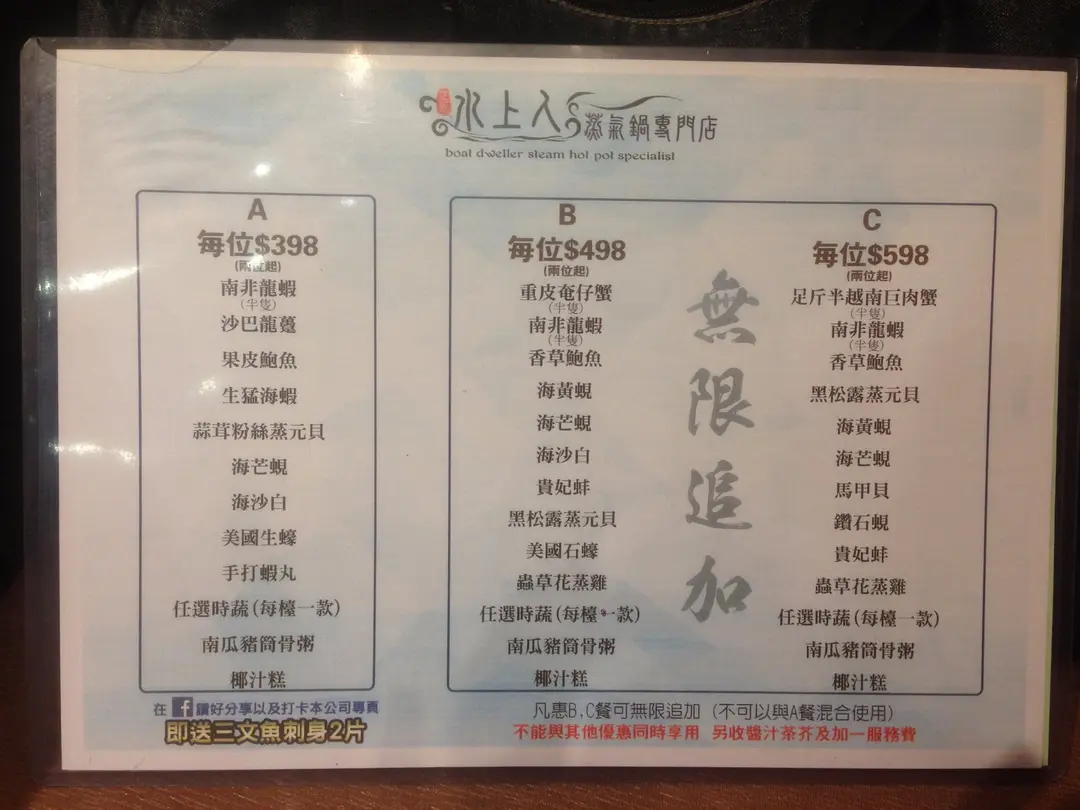 水上人蒸氣鍋專門店
boat dweller steam hot pot specialist
A
每位$398
(兩位起)
南非龍蝦
(半隻)
沙巴龍躉
果皮鮑魚
生猛海蝦
蒜茸粉絲蒸元貝
海芒蜆
海沙白
美國生蠔
手打蝦丸
任選時蔬(每檯一款)
南瓜豬筒骨粥
椰汁糕
B
每位$498
(兩位起)
重皮奄仔蟹
(半隻)
南非龍蝦
(半隻)
香草鮑魚
海黃蜆
海芒蜆
海沙白
貴妃蚌
黑松露蒸元貝
美國石蠔
蟲草花蒸雞
任選時蔬(每檯一款)
南瓜豬筒骨粥
椰汁糕
無限追加
C
每位$598
(兩位起)
足斤半越南巨肉蟹
(半隻)
南非龍蝦
(半隻)
香草鮑魚
黑松露蒸元貝
海黃蜆
海芒蜆
馬甲貝
鑽石蜆
貴妃蚌
蟲草花蒸雞
任選時蔬(每檯一款)
南瓜豬筒骨粥
椰汁糕
在f讚好分享以及打卡本公司專頁
即送三文魚刺身2片
凡惠B,C餐可無限追加 (不可以與A餐混合使用)
不能與其他優惠同時享用 另收醬汁茶芥及加一服務費